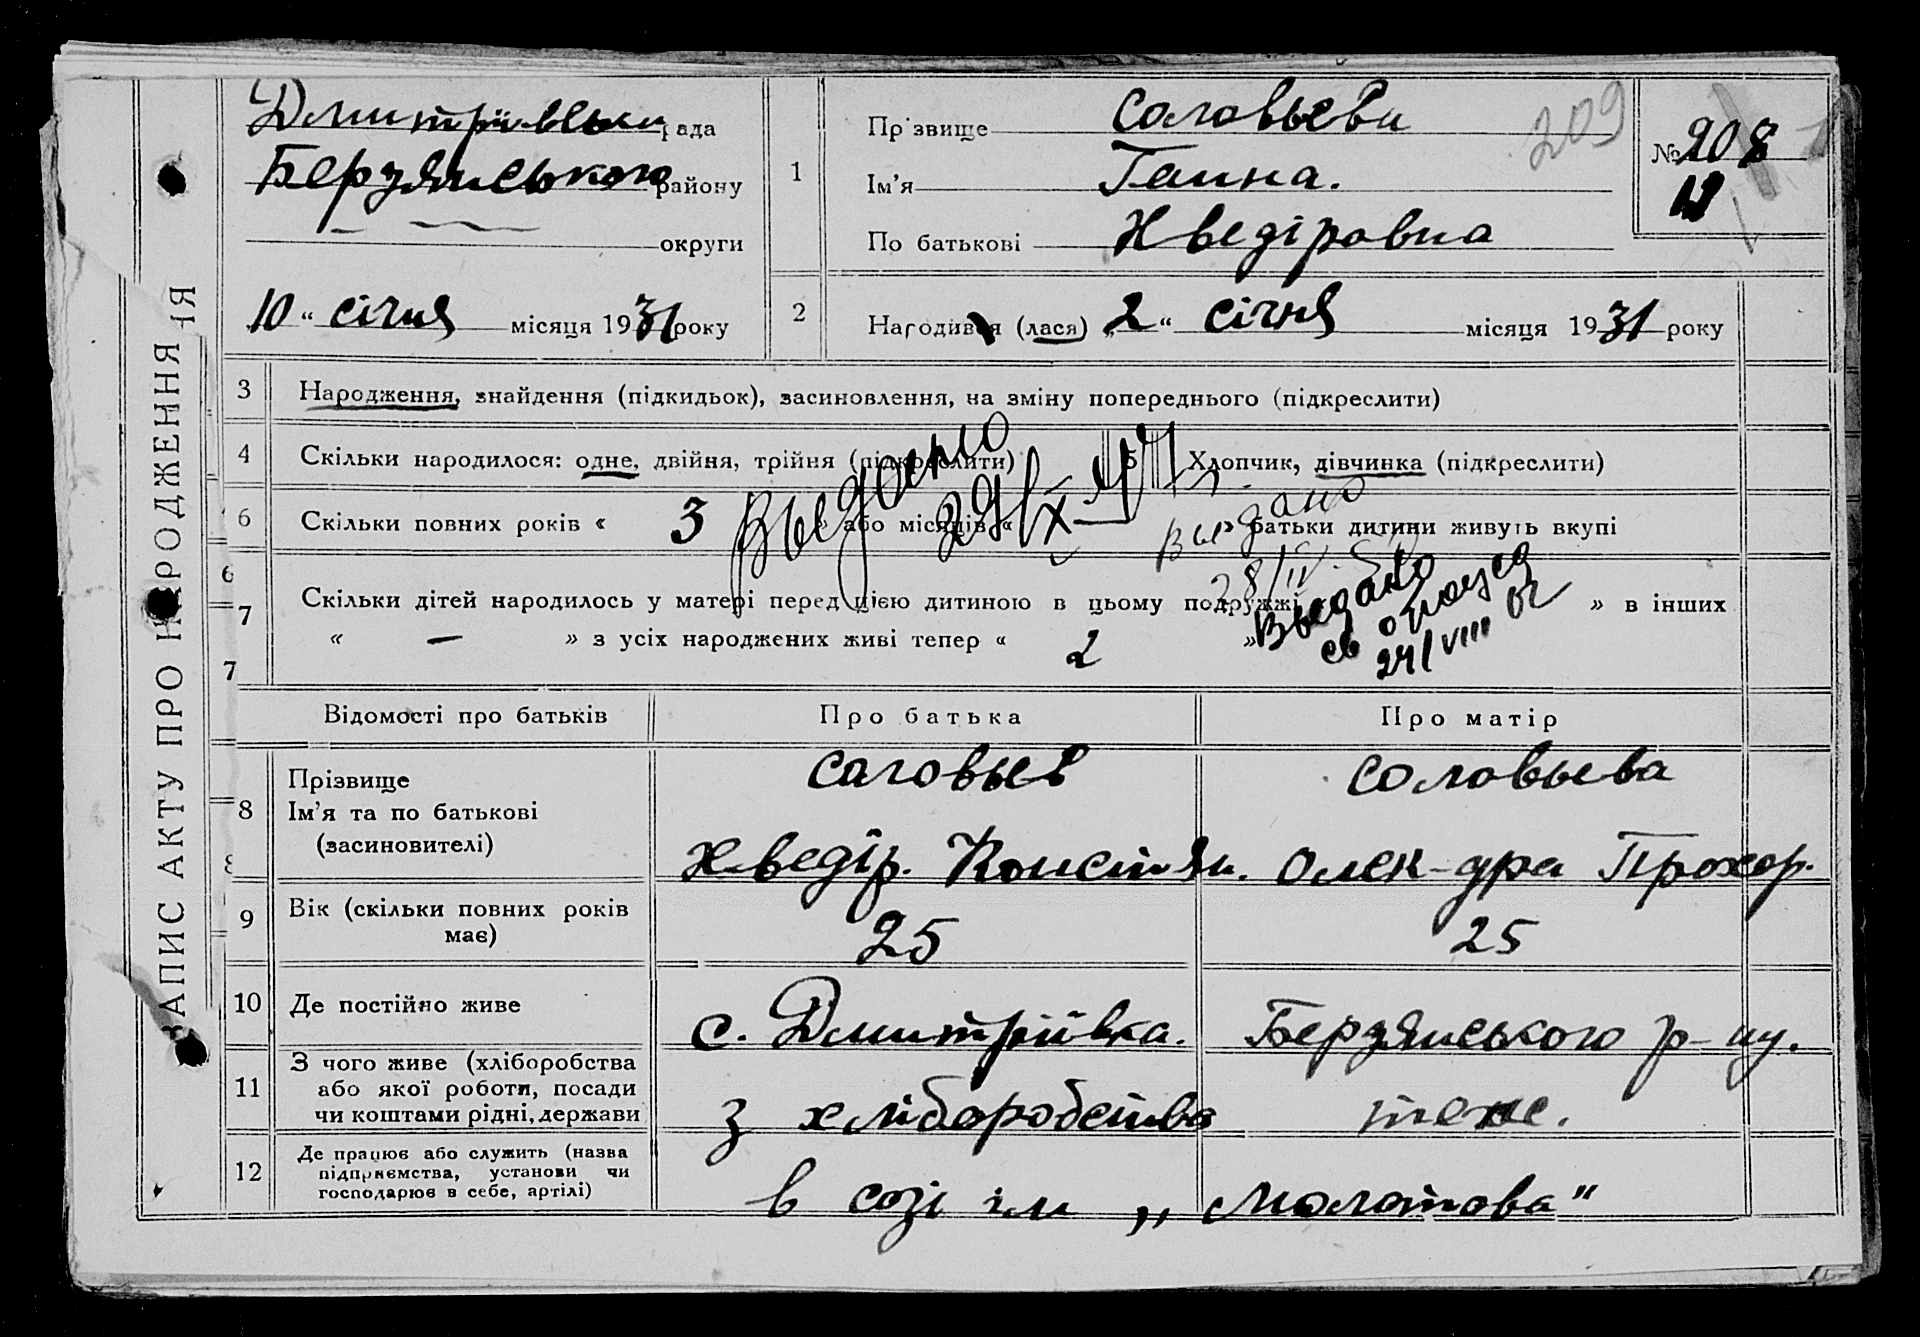 ЗАПИС АКТУ ПРО НАРОДЖЕННЯ
Дмитрівська рада
Бердянського району
округи
10 “ січня місяця 1931 року
1
Прізвище Соловьева
Ім’я Ганна.
По батькові Хведіровна
209
№ 208
12
2
Народився (лася) „ 2 “ січня місяця 1931 року
3 Народження, знайдення (підкидьок), засиновлення, на зміну попереднього (підкреслити)
4 Скільки народилося: одне, двійня, трійня (підкреслити) 5 Хлопчик, дівчинка (підкреслити)
6 Скільки повних років « 3 » або місяців « » батьки дитини живуть вкупі
Выдано
29/X-47
Выдано
28/IV
6
7 Скільки дітей народилось у матері перед цією дитиною в цьому подружжі » в інших
« — » з усіх народжених живі тепер « 2 »
Выдано
24/VIII
7
Відомості про батьків Про батька Про матір
8 Прізвище Соловьев Соловьева
Ім’я та по батькові
(засиновителі) Хведір. Констян. Олек-дра Прохор.
9 Вік (скільки повних років має) 25 25
10 Де постійно живе с. Дмитріївка. Бердянського р-ну.
11 З чого живе (хліборобства
або якої роботи, посади
чи коштами рідні, держави з хліборобства теж.
12 Де працює або служить (назва
підприємства, установи чи
господарює в себе, артілі) в созі ім „Молотова”